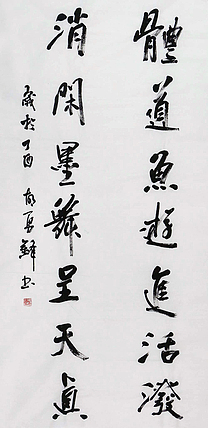 體道魚遊進活潑
消閑墨舞呈天真
歲於丁酉 夏 书